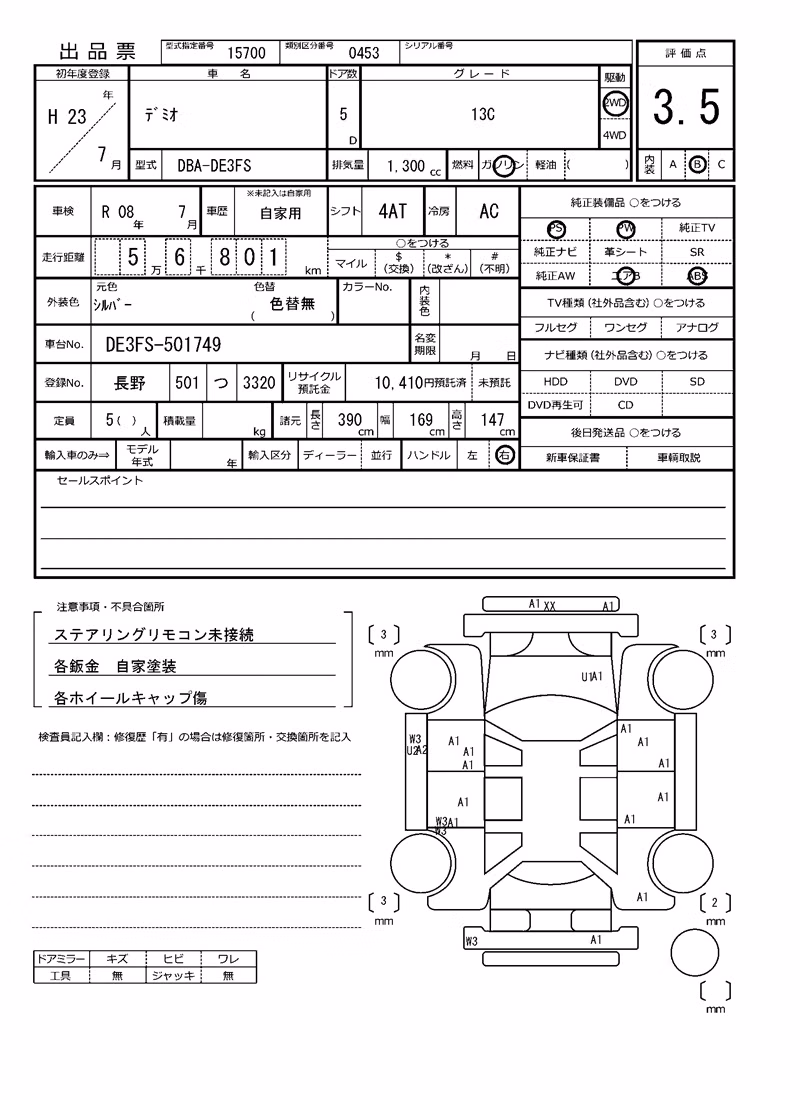 出品票 型式指定番号 15700 類別区分番号 0453 シリアル番号
評価点
3.5
内装 A B C
初年度登録 車名 ドア数 グレード 駆動
H 23 年 7 月 デミオ 5 D 13C 2WD
4WD
型式 DBA-DE3FS 排気量 1,300 cc 燃料 ガソリン 軽油 ( )
車検 R 08 年 7 月 車歴 ※未記入は自家用 自家用 シフト 4AT 冷房 AC
走行距離 5 万 6 千 8 0 1 km ○をつける
マイル $(交換) *(改ざん) #(不明)
外装色 元色 シルバー 色替 ( 色替無 ) カラーNo. 内装色
車台No. DE3FS-501749 名変期限 月 日
登録No. 長野 501 つ 3320 リサイクル預託金 10,410円預託済 未預託
定員 5( ) 人 積載量 kg 諸元 長さ 390 cm 幅 169 cm 高さ 147 cm
輸入車のみ⇒ モデル年式 年 輸入区分 ディーラー 並行 ハンドル 左 右
純正装備品 ○をつける
PS PW 純正TV
純正ナビ 革シート SR
純正AW エアB ABS
TV種類(社外品含む)○をつける
フルセグ ワンセグ アナログ
ナビ種類(社外品含む)○をつける
HDD DVD SD
DVD再生可 CD
後日発送品 ○をつける
新車保証書 車輌取説
セールスポイント
注意事項・不具合箇所
ステアリングリモコン未接続
各鈑金 自家塗装
各ホイールキャップ傷
検査員記入欄：修復歴「有」の場合は修復箇所・交換箇所を記入
ドアミラー キズ ヒビ ワレ
工具 無 ジャッキ 無
A1 XX A1
3 mm
3 mm
U1A1
W3
U2A2
A1
A1
A1
A1
A1
A1
A1
A1
W3A1
W3
A1
A1
3 mm
2 mm
W3 A1
mm